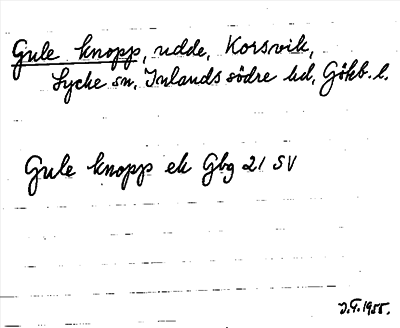 Gule knopp, udde, Korsvik,
Lycke sn, Inlands södre hd, Gökb. l.
Gule knopp ek Gbg 21 SV
J.F. 1955.